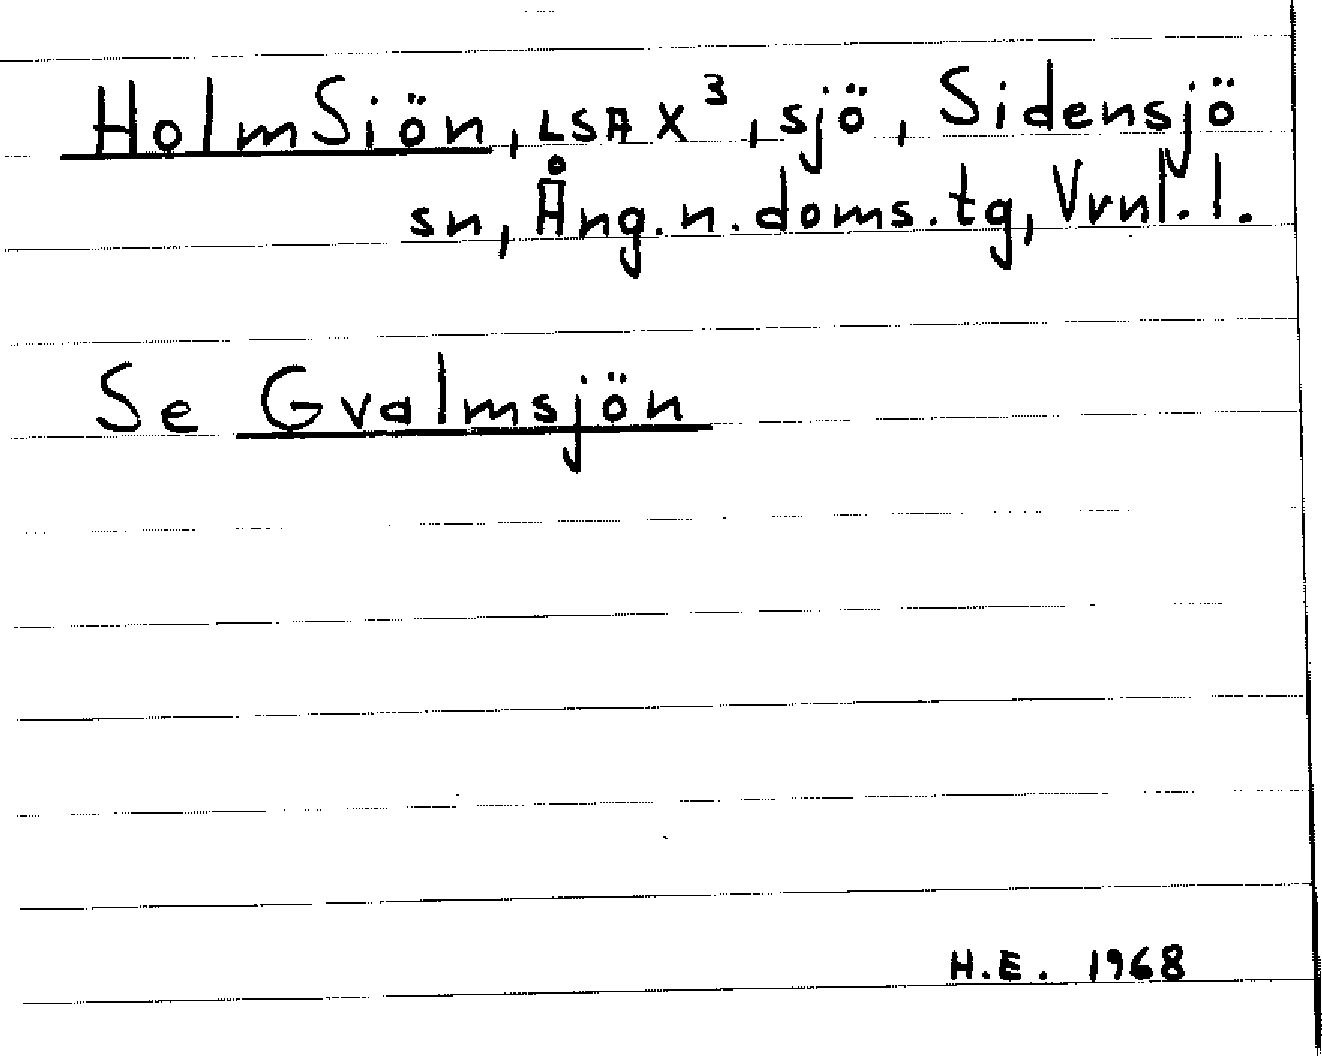 HolmSiön, LSA X³, sjö, Sidensjö
sn, Ång.n.doms.tg, Vrnl.l.
Se Gvalmsjön
H.E. 1968